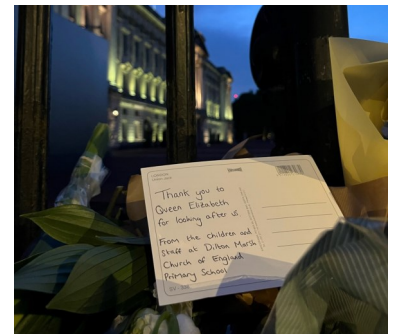 Thank you to
Queen Elizabeth
for looking after us
From the children and
Staff at Dilton Marsh
Church of England
Primary School